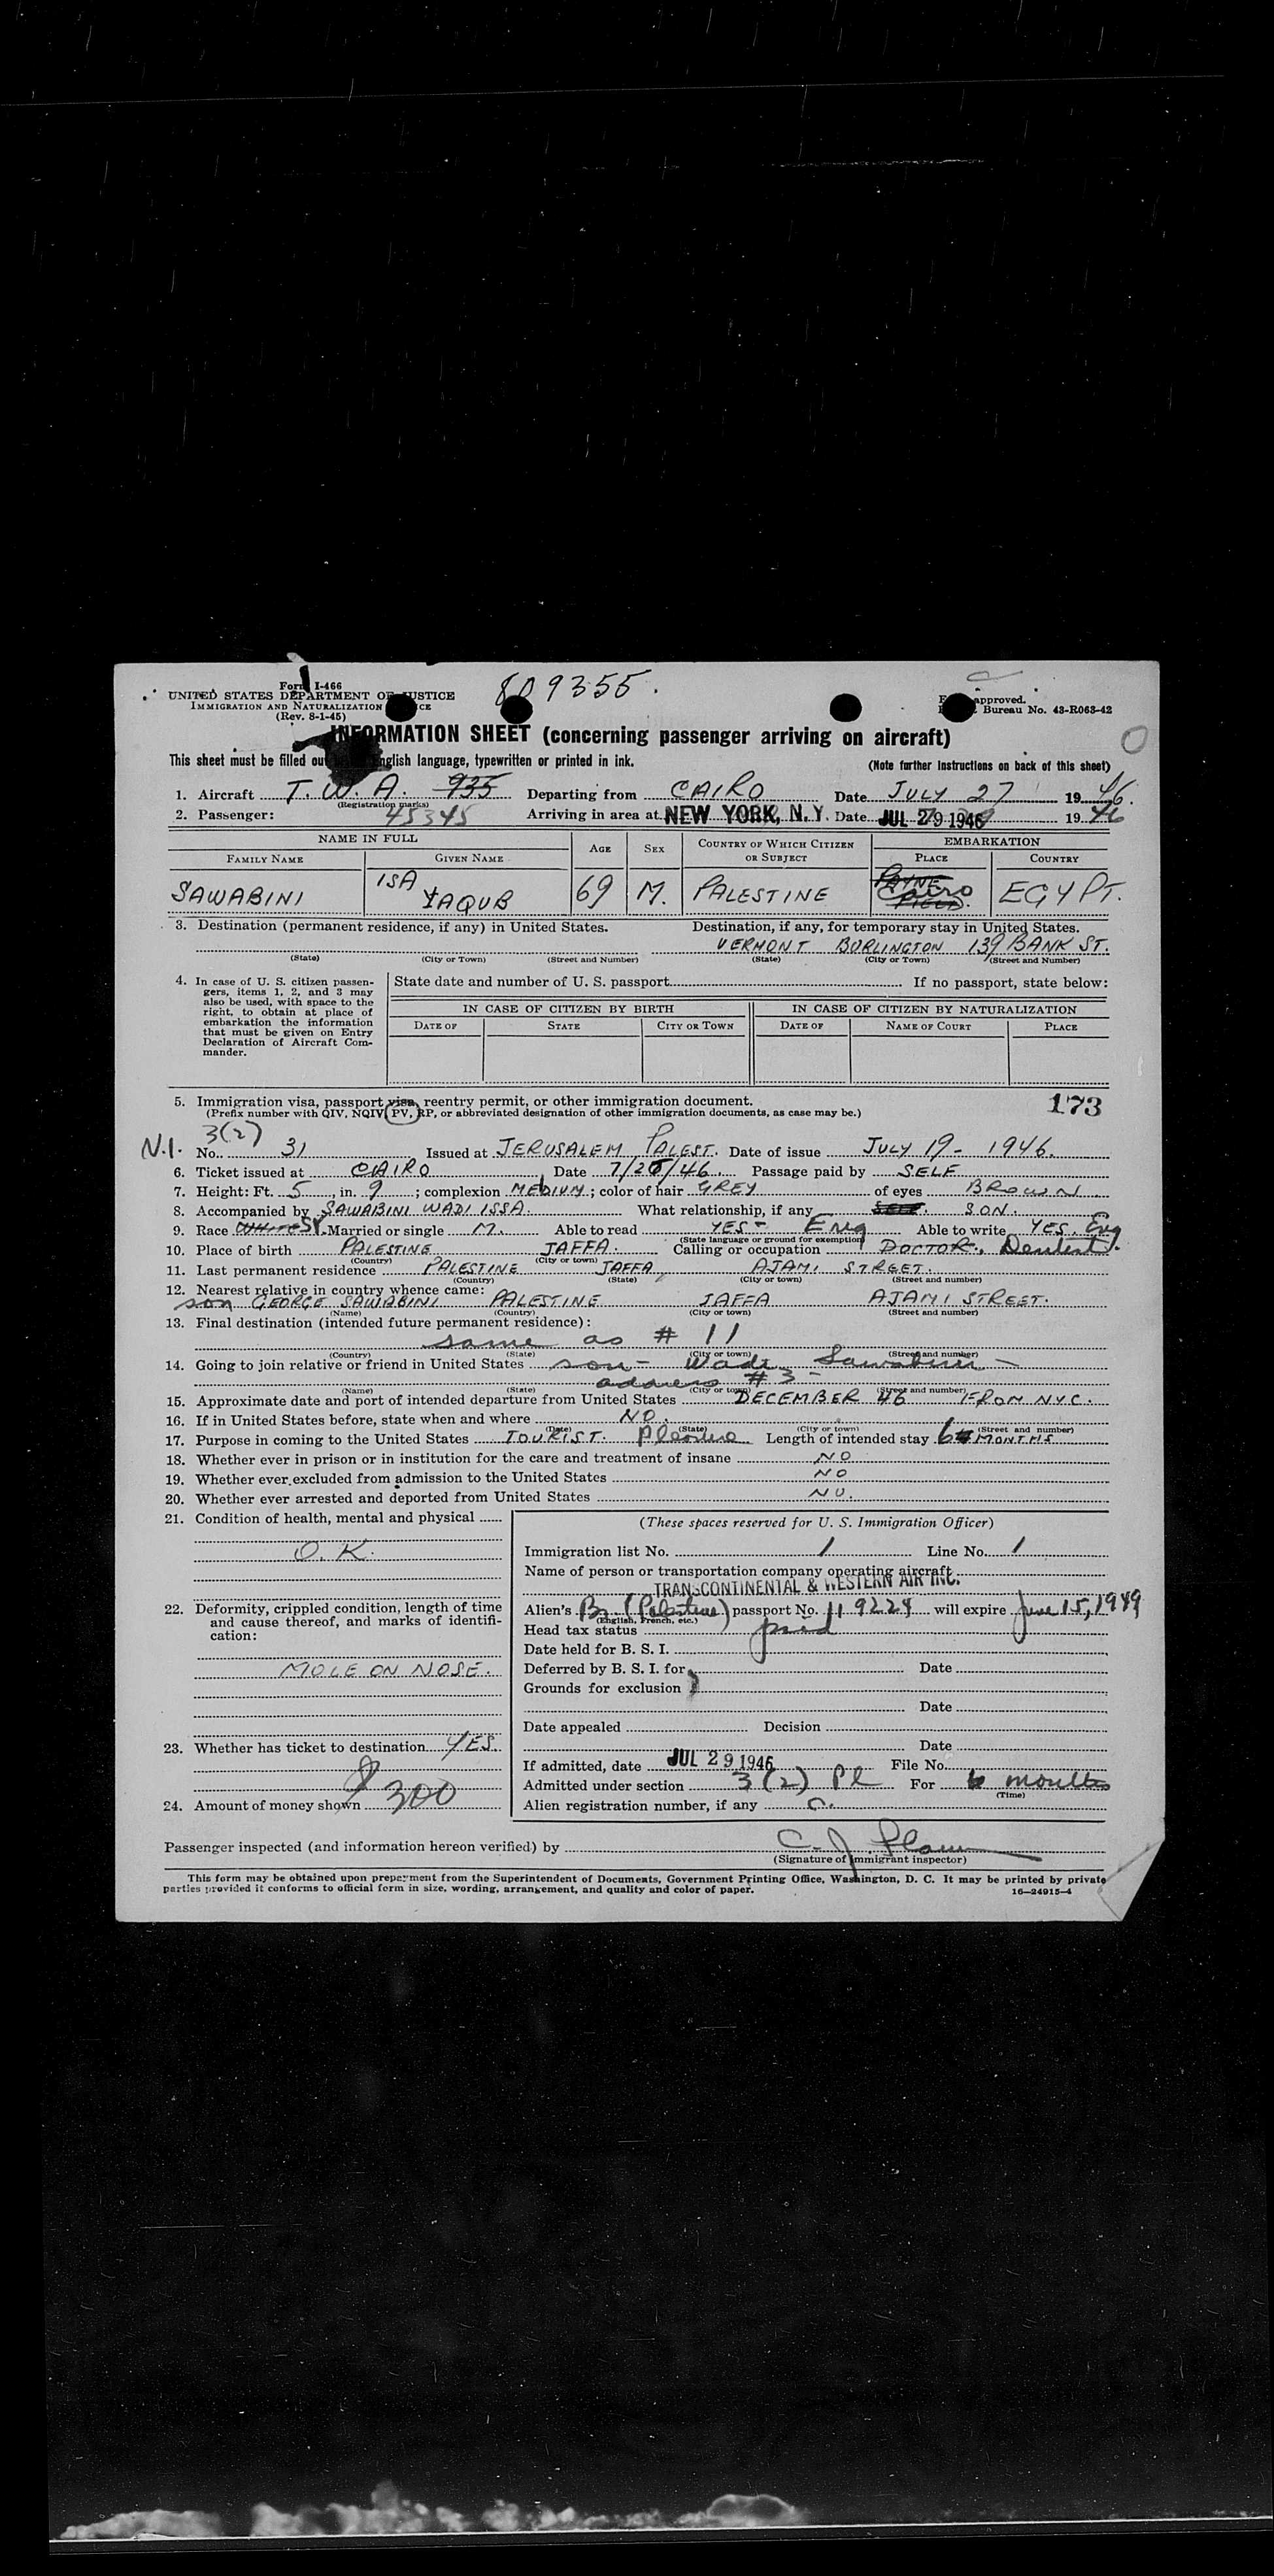 809355.
Form I-466
UNITED STATES DEPARTMENT OF JUSTICE
IMMIGRATION AND NATURALIZATION
(Rev. 8-1-45)
approved.
Bureau No. 43-R063-42
INFORMATION SHEET (concerning passenger arriving on aircraft)
This sheet must be filled English language, typewritten or printed in ink.
(Note further instructions on back of this sheet)
1. Aircraft T. W. A. 935 Departing from CAIRO Date JULY 27 1946.
(Registration marks)
2. Passenger: 45345 Arriving in area at NEW YORK, N.Y. Date JUL 29 1946 1946
NAME IN FULL AGE SEX COUNTRY OF WHICH CITIZEN OR SUBJECT EMBARKATION
FAMILY NAME GIVEN NAME PLACE COUNTRY
SAWABINI ISA YAQUB 69 M. PALESTINE PAYNE FIELD. Cairo EGYPT.
3. Destination (permanent residence, if any) in United States. Destination, if any, for temporary stay in United States.
VERMONT BURLINGTON 139 BANK ST.
(State) (City or Town) (Street and Number) (State) (City or Town) (Street and Number)
4. In case of U. S. citizen passengers, items 1, 2, and 3 may also be used, with space to the right, to obtain at place of embarkation the information that must be given on Entry Declaration of Aircraft Commander.
State date and number of U. S. passport If no passport, state below:
IN CASE OF CITIZEN BY BIRTH IN CASE OF CITIZEN BY NATURALIZATION
DATE OF STATE CITY OR TOWN DATE OF NAME OF COURT PLACE
5. Immigration visa, passport visa, reentry permit, or other immigration document.
(Prefix number with QIV, NQIV, PV, RP, or abbreviated designation of other immigration documents, as case may be.)
173
3(2)
N.I. No. 31 Issued at JERUSALEM PALEST. Date of issue JULY 19 - 1946.
6. Ticket issued at CAIRO Date 7/26/46 Passage paid by SELF
7. Height: Ft. 5, in. 9; complexion MEDIUM; color of hair GREY of eyes BROWN
8. Accompanied by SAWABINI WADI ISSA. What relationship, if any SELF. SON.
9. Race WHITE Sy. Married or single M. Able to read YES - Eng Able to write YES, Eng
(State language or ground for exemption)
10. Place of birth PALESTINE JAFFA. Calling or occupation DOCTOR, Dentist.
(Country) (City or town)
11. Last permanent residence PALESTINE JAFFA AJAMI STREET.
(Country) (State) (City or town) (Street and number)
12. Nearest relative in country whence came:
son GEORGE SAWABINI PALESTINE JAFFA AJAMI STREET.
(Name) (Country) (City or town) (Street and number)
13. Final destination (intended future permanent residence):
same as # 11
(Country) (State) (City or town) (Street and number)
14. Going to join relative or friend in United States son - Wadi Sawabini -
address #3 -
(Name) (State) (City or town) (Street and number)
15. Approximate date and port of intended departure from United States DECEMBER 46 FROM NYC.
16. If in United States before, state when and where NO.
(Date) (State) (City or town) (Street and number)
17. Purpose in coming to the United States TOURIST. Pleasure Length of intended stay 6 MONTHS
18. Whether ever in prison or in institution for the care and treatment of insane NO
19. Whether ever excluded from admission to the United States NO
20. Whether ever arrested and deported from United States NO.
21. Condition of health, mental and physical
O. K.
22. Deformity, crippled condition, length of time and cause thereof, and marks of identification:
MOLE ON NOSE.
23. Whether has ticket to destination YES.
24. Amount of money shown $300
(These spaces reserved for U. S. Immigration Officer)
Immigration list No. 1 Line No. 1
Name of person or transportation company operating aircraft
TRANSCONTINENTAL & WESTERN AIR INC.
Alien's Br (Palestine) passport No. 119224 will expire June 15, 1949
(English, French, etc.)
Head tax status paid
Date held for B. S. I.
Deferred by B. S. I. for Date
Grounds for exclusion
Date
Date appealed Decision
Date
If admitted, date JUL 29 1946 File No.
Admitted under section 3(2) Pl For 6 months
(Time)
Alien registration number, if any
Passenger inspected (and information hereon verified) by C. J.
(Signature of immigrant inspector)
This form may be obtained upon prepayment from the Superintendent of Documents, Government Printing Office, Washington, D. C. It may be printed by private
parties provided it conforms to official form in size, wording, arrangement, and quality and color of paper.
16-24915-4